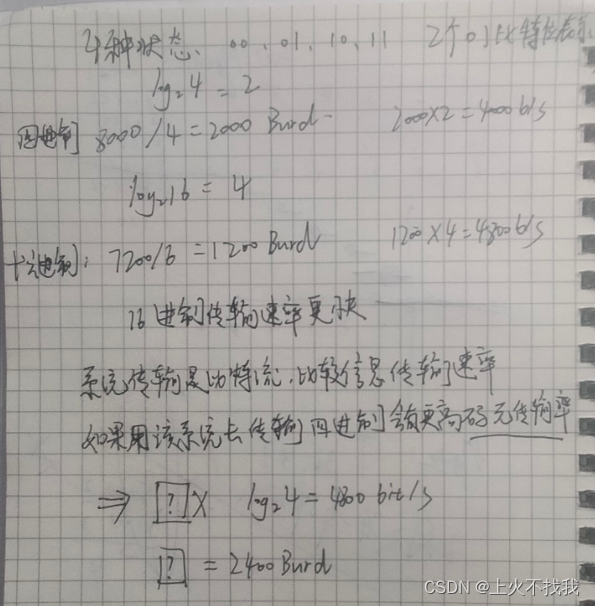 4种状态、00、01、10、11 2个比特表示
log₂4 = 2
四进制 8000/4 = 2000 Burd 2000×2=4000b/s
log₂16 = 4
十六进制: 7200/6 = 1200 Burd 1200×4=4800b/s
16进制传输速率更快
系统传输是比特流,比较信息传输速率
如果用该系统去传输四进制会有更高码元传输率
⇒ ? × log₂4 = 4800 bit/s
? = 2400 Burd
CSDN @上火不找我